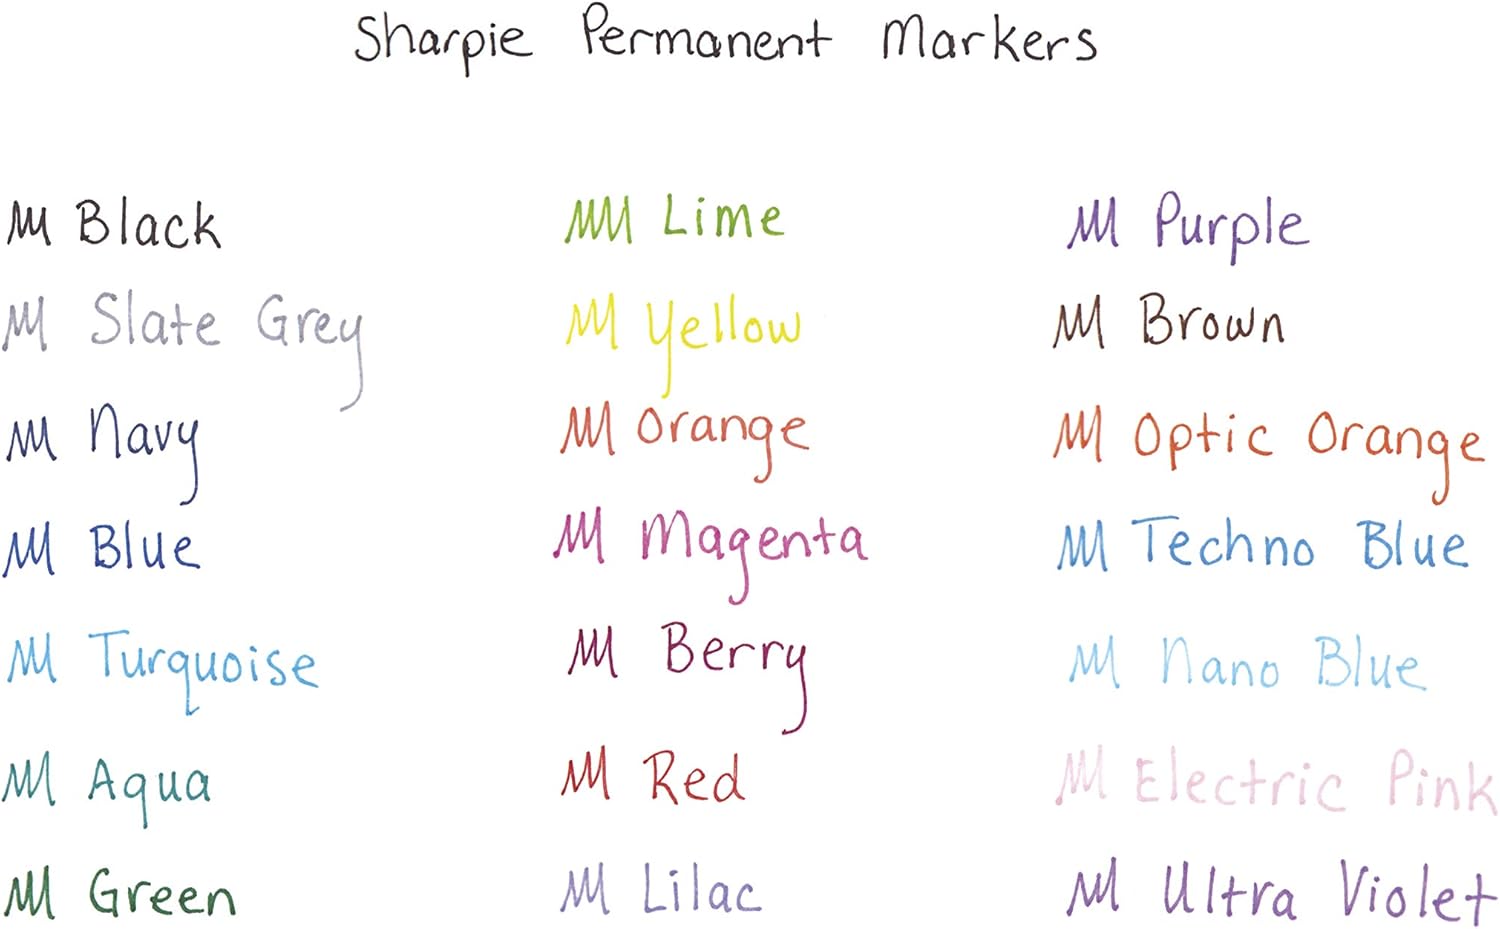 Sharpie Permanent Markers
Black
Slate Grey
Navy
Blue
Turquoise
Aqua
Green
Lime
Yellow
Orange
Magenta
Berry
Red
Lilac
Purple
Brown
Optic Orange
Techno Blue
Nano Blue
Electric Pink
Ultra Violet